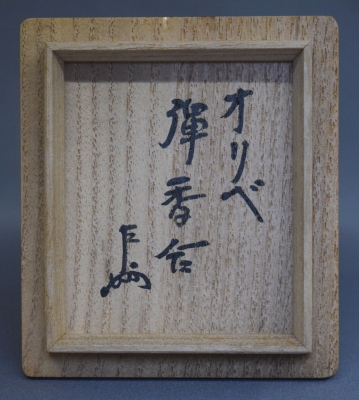 オリベ
弾香台